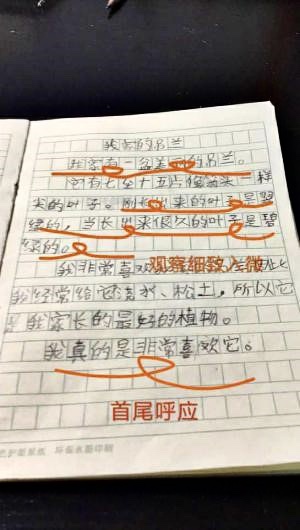 我家的吊兰
我家有一盆美丽的吊兰。
它有七至十五片像箭头一样
尖的叶子。刚长出来的叶子是翠
绿的,当长出来很久的叶子是碧
绿的。
我非常喜
观察细致入微
我经常给它浇水、松土,所以它
是我家长的最好的植物。
我真的是非常喜欢它。
首尾呼应